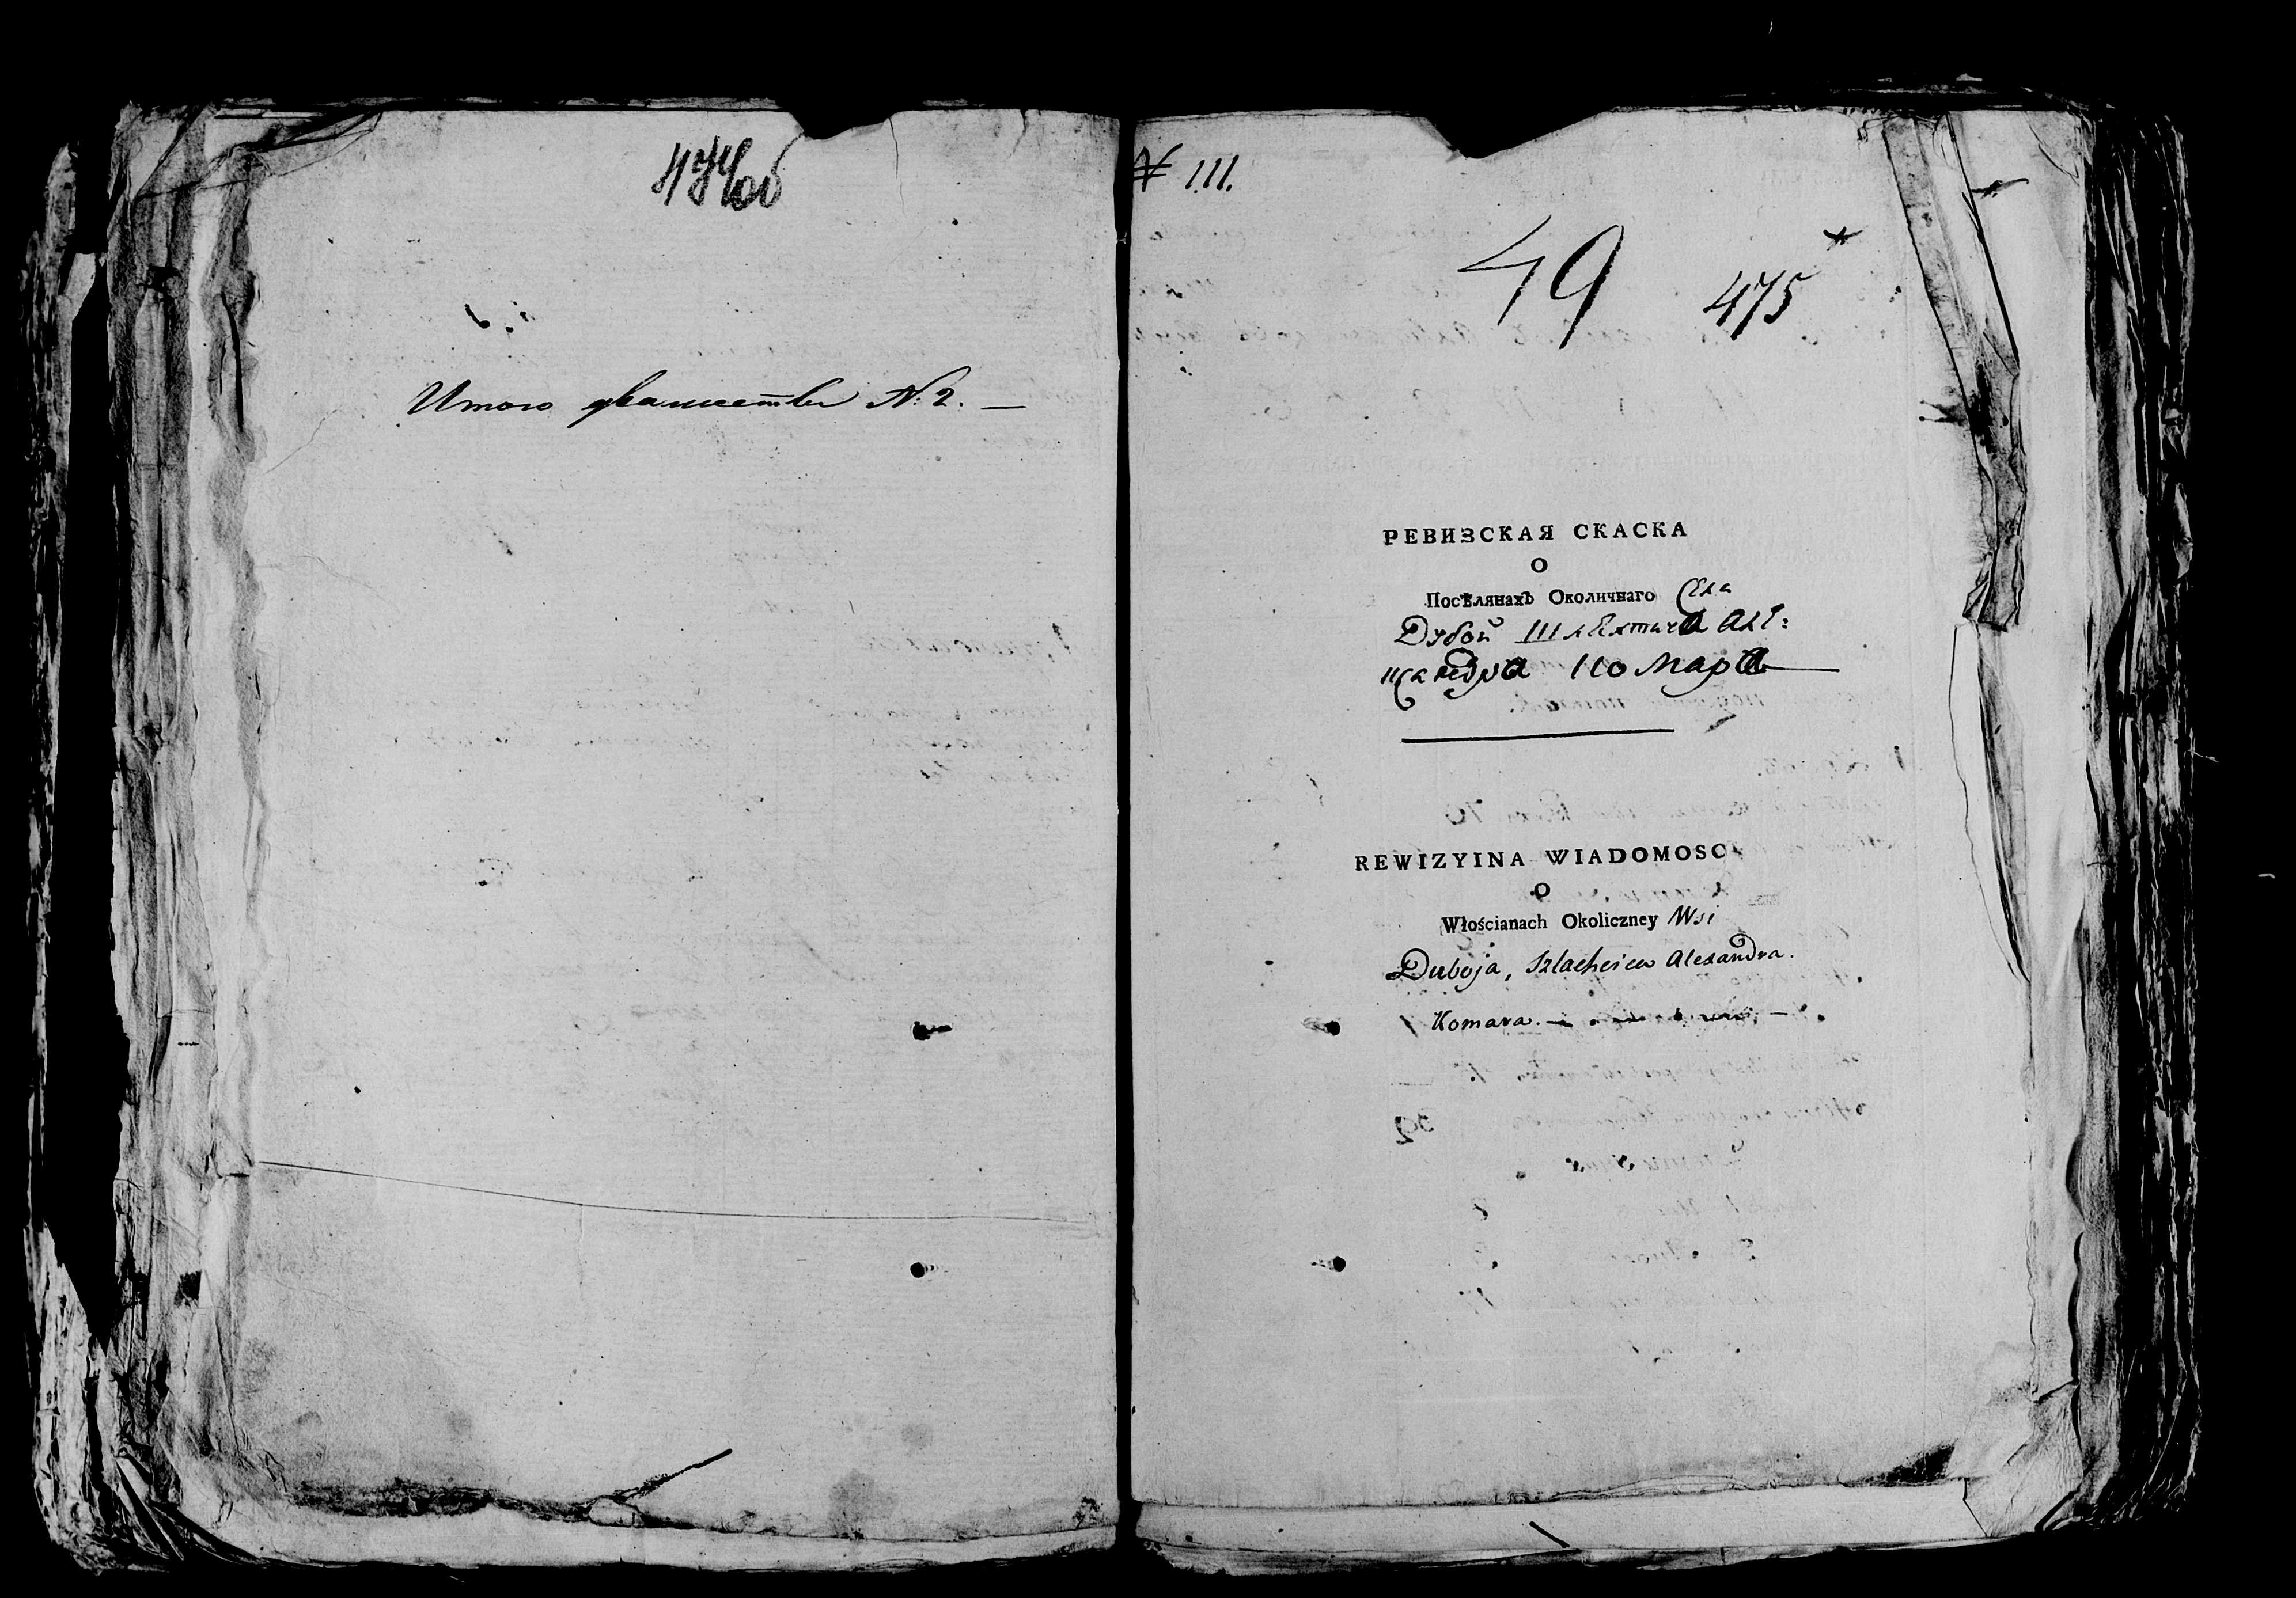 474об
Итого хвашество N: 2. —
N 111.
49
475
РЕВИЗСКАЯ СКАСКА
О
Посѣлянахъ Околичнаго Села
Дубой Шляхтича Алѣ:
ксандра Комара
REWIZYINA WIADOMOSC
O
Włościanach Okoliczney Wsi
Duboja, Szlachcica Alexandra.
Komara. —